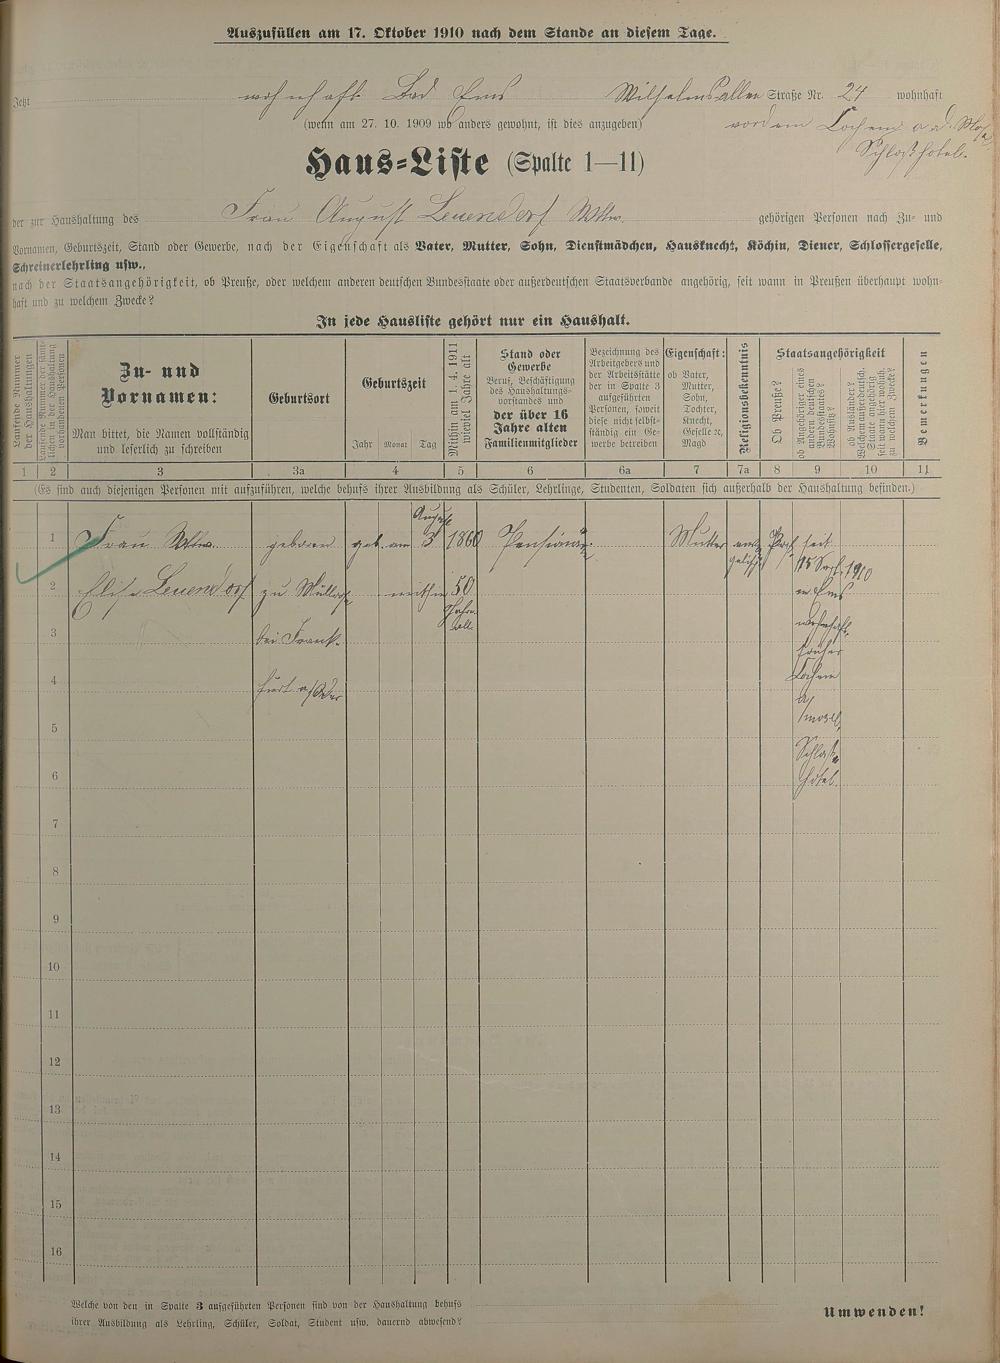 Auszufüllen am 17. Oktober 1910 nach dem Stande an diesem Tage.
Jetzt wohnhaft Bad Ems Wilhelmsallee Straße Nr. 24 wohnhaft
(wenn am 27. 10. 1909 wo anders gewohnt, ist dies anzugeben) vordem Cochem a. d. Mosel
Schloßhotel.
Haus-Liste (Spalte 1—11)
der zur Haushaltung des Frau August Leuendorf Wttw. gehörigen Personen nach Zu- und
Vornamen, Geburtszeit, Stand oder Gewerbe, nach der Eigenschaft als Vater, Mutter, Sohn, Dienstmädchen, Hausknecht, Köchin, Diener, Schlossergeselle,
Schreinerlehrling usw.,
nach der Staatsangehörigkeit, ob Preuße, oder welchem anderen deutschen Bundesstaate oder außerdeutschen Staatsverbande angehörig, seit wann in Preußen überhaupt wohn-
haft und zu welchem Zwecke?
In jede Hausliste gehört nur ein Haushalt.
Laufende Nummer
der Haushaltungen
Laufende Nummer der sämt-
lichen in der Haushaltung
vorhandenen Personen
Zu- und
Vornamen:
Man bittet, die Namen vollständig
und leserlich zu schreiben
Geburtsort
Geburtszeit
Jahr Monat Tag
Mithin am 1. 4. 1911
wieviel Jahre alt
Stand oder
Gewerbe
Beruf, Beschäftigung
des Haushaltungs-
vorstandes und
der über 16
Jahre alten
Familienmitglieder
Bezeichnung des
Arbeitgebers und
der Arbeitsstätte
der in Spalte 3
aufgeführten
Personen, soweit
diese nicht selbst-
ständig ein Ge-
werbe betreiben
Eigenschaft:
ob Vater,
Mutter,
Sohn,
Tochter,
Knecht,
Geselle ꝛc,
Magd
Religionsbekenntnis
Staatsangehörigkeit
Ob Preuße?
ob Angehöriger eines
andern deutschen
Bundesstaates?
Wohnsitz?
ob Ausländer?
Welchem außerdeutsch.
Staate angehörig
seit wann hier wohnh.
zu welchem Zwecke?
Bemerkungen
1 2 3 3a 4 5 6 6a 7 7a 8 9 10 11
(Es sind auch diejenigen Personen mit aufzuführen, welche behufs ihrer Ausbildung als Schüler, Lehrlinge, Studenten, Soldaten sich außerhalb der Haushaltung befinden.)
August
1 Frau Wttw. geboren geb. am 3 1860 Mutter seit
15 Sept. 1910
2 Elise Leuendorf zu mithin 50 in Ems
Jahre
alt. wohnhaft,
3 bei Frank- früher
4 furt a/Oder Cochem
a/
5 Mosel,
Schloß-
6 hotel.
7
8
9
10
11
12
13
14
15
16
Welche von den in Spalte 3 aufgeführten Personen sind von der Haushaltung behufs
ihrer Ausbildung als Lehrling, Schüler, Soldat, Student usw. dauernd abwesend?
Umwenden!